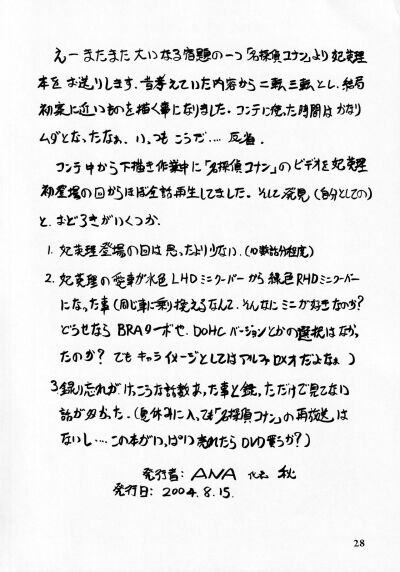 えーまたまた大いなる宿題の一つ「名探偵コナン」より妃英理
本をお送りします。当初考えていた内容から二転、三転とし、結局
初案に近いものを描く事になりました。コンテに使った時間はかなり
ムダとなったなぁ、いつもこうだ‥‥反省。
コンテ中から下描き作業中に「名探偵コナン」のビデオを妃英理
初登場の回からほぼ全話再生してました。そして発見(自分としての)
と、おどろきがいくつか。
1. 妃英理登場の回は思ったより少ない。(10数話分程度)
2. 妃英理の愛車が水色LHDミニクーパーから緑色RHDミニクーパー
になった事(同じ車に乗り換えるなんて、そんなにミニが好きなのか?
どうせなら BRAターボや、DOHCバージョンとかの選択はなかっ
たのか? でもキャライメージとしてはアルファロメオだよなぁ)
3. 録り忘れが、けっこうな話数あった事と録っただけで見てない
話が多かった。(夏休みに入っても「名探偵コナン」の再放送は
ないし‥‥この本がいっぱい売れたらDVD買うか?)
発行者: ANA 代表 秋
発行日: 2004.8.15.
28